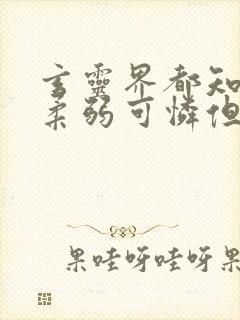 玄靈界都知
柔弱可憐但
果哇呀哇呀果